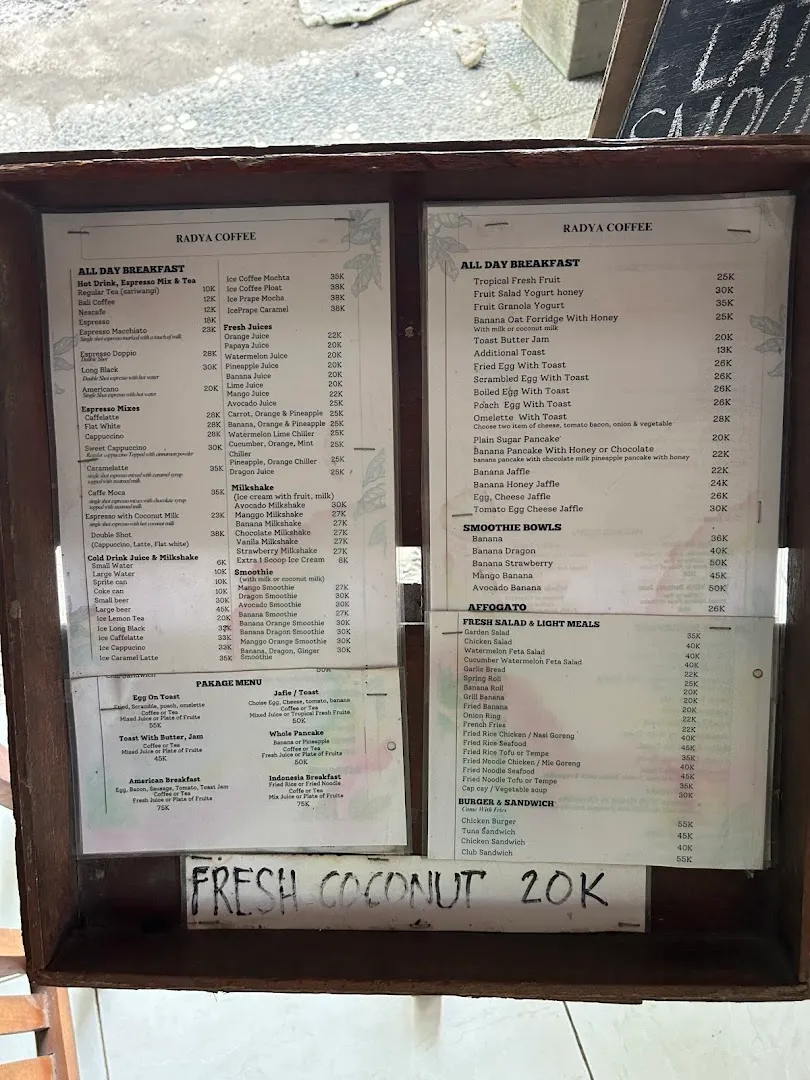 RADYA COFFEE
ALL DAY BREAKFAST
Hot Drink, Espresso Mix & Tea
Regular Tea (sariwangi) 10K
Bali Coffee 12K
Nescafe 12K
Espresso 18K
Espresso Macchiato 23K
Single shot espresso marked with a touch of milk
Espresso Doppio 28K
Double Shot
Long Black 30K
Double Shot espresso with hot water
Americano 20K
Single shot espresso with hot water
Espresso Mixes
Caffelatte 28K
Flat White 28K
Cappuccino 28K
Sweet Cappuccino 30K
Regular cappuccino Topped with cinnamon powder
Caramelatte 35K
single shot espresso mixed with caramel syrup
topped with steamed milk
Caffe Moca 35K
single shot espresso mixes with chocolate syrup
topped with steamed milk
Espresso with Coconut Milk 23K
single shot espresso with hot coconut milk
Double Shot 38K
(Cappucino, Latte, Flat white)
Cold Drink Juice & Milkshake
Small Water 6K
Large Water 10K
Sprite can 10K
Coke can 10K
Small beer 30K
Large beer 45K
Ice Lemon Tea 20K
Ice Long Black
Ice Caffelatte 33K
Ice Cappucino 33K
Ice Caramel Latte 35K
Ice Coffee Mochta 35K
Ice Coffee Ploat 38K
Ice Prape Mocha 38K
IcePrape Caramel 38K
Fresh Juices
Orange Juice 22K
Papaya Juice 20K
Watermelon Juice 20K
Pineapple Juice 20K
Banana Juice 20K
Lime Juice 20K
Mango Juice 22K
Avocado Juice 25K
Carrot, Orange & Pineapple 25K
Banana, Orange & Pineapple 25K
Watermelon Lime Chiller 25K
Cucumber, Orange, Mint 25K
Chiller
Pineapple, Orange Chiller 25K
Dragon Juice 25K
Milkshake
(Ice cream with fruit, milk)
Avocado Milkshake 30K
Manggo Milkshake 27K
Banana Milkshake 27K
Chocolate Milkshake 27K
Vanila Milkshake 27K
Strawberry Milkshake 27K
Extra 1 Scoop Ice Cream 8K
Smoothie
(with milk or coconut milk)
Mango Smoothie 27K
Dragon Smoothie 30K
Avocado Smoothie 30K
Banana Smoothie 27K
Banana Orange Smoothie 30K
Banana Dragon Smoothie 30K
Manggo Orange Smoothie 30K
Banana, Dragon, Ginger 30K
Smoothie
PAKAGE MENU
Egg On Toast
Fried, Scramble, poach, omelette
Coffee or Tea
Mixed Juice or Plate of Fruits
55K
Toast With Butter, Jam
Coffee or Tea
Mixed Juice or Plate of Fruits
45K
American Breakfast
Egg, Bacon, Sausage, Tomato, Toast Jam
Coffee or Tea
Fresh Juice or Plate of Fruits
75K
Jafle / Toast
Choise Egg, Cheese, tomato, banana
Coffee or Tea
Mixed Juice or Tropical Fresh Fruits
50K
Whole Pancake
Banana or Pineapple
Coffee or Tea
Fresh Juice or Plate of Fruits
50K
Indonesia Breakfast
Fried Rice or Fried Noodle
Coffe or Tea
Mix Juice or Plate of Fruits
75K
RADYA COFFEE
ALL DAY BREAKFAST
Tropical Fresh Fruit 25K
Fruit Salad Yogurt honey 30K
Fruit Granola Yogurt 35K
Banana Oat Forridge With Honey 25K
With milk or coconut milk
Toast Butter Jam 20K
Additional Toast 13K
Fried Egg With Toast 26K
Scrambled Egg With Toast 26K
Boiled Egg With Toast 26K
Poach Egg With Toast 26K
Omelette With Toast 28K
Choose two item of cheese, tomato, bacon, onion & vegetable
Plain Sugar Pancake 20K
Banana Pancake With Honey or Chocolate 22K
banana pancake with chocolate milk pineapple pancake with honey
Banana Jaffle 22K
Banana Honey Jaffle 24K
Egg, Cheese Jaffle 26K
Tomato Egg Cheese Jaffle 30K
SMOOTHIE BOWLS
Banana 36K
Banana Dragon 40K
Banana Strawberry 50K
Mango Banana 45K
Avocado Banana 50K
AFFOGATO 26K
FRESH SALAD & LIGHT MEALS
Garden Salad 35K
Chicken Salad 40K
Watermelon Feta Salad 40K
Cucumber Watermelon Feta Salad 40K
Garlic Bread 22K
Spring Roll 25K
Banana Roll 20K
Grill Banana 20K
Fried Banana 20K
Onion Ring 22K
French Fries 22K
Fried Rice Chicken / Nasi Goreng 40K
Fried Rice Seafood 45K
Fried Rice Tofu or Tempe 35K
Fried Noodle Chicken / Mie Goreng 40K
Fried Noodle Seafood 45K
Fried Noodle Tofu or Tempe 35K
Cap cay / Vegetable soup 30K
BURGER & SANDWICH
Come With Fries
Chicken Burger 55K
Tuna Sandwich 45K
Chicken Sandwich 40K
Club Sandwich 55K
FRESH COCONUT 20K